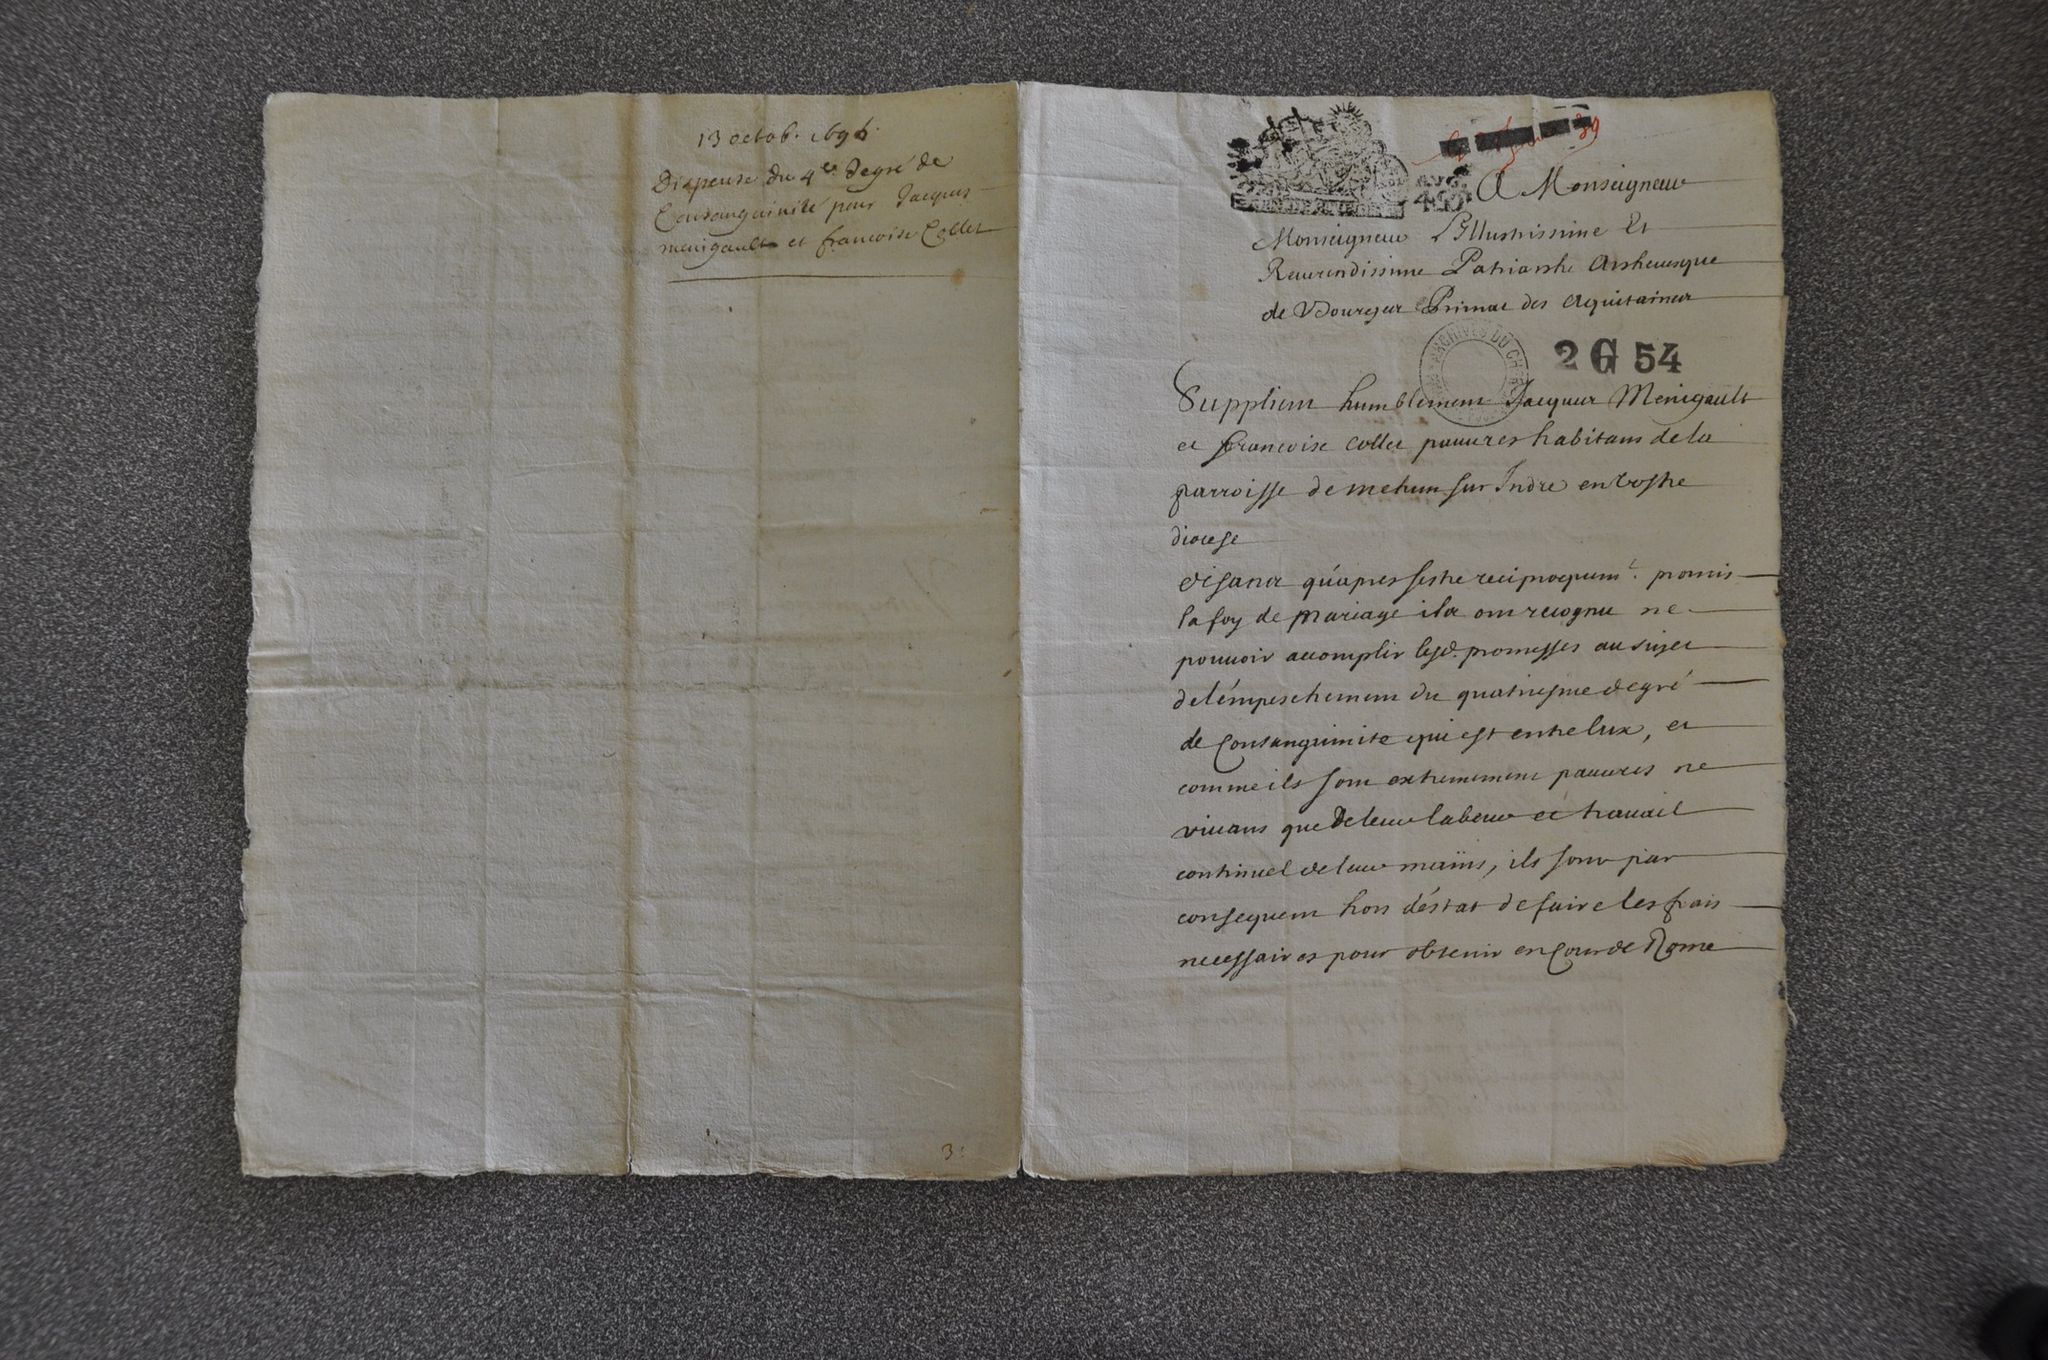 13 octob. 169
Dispense du 4e degré de
Consanguinité pour Jacques
menigault et francoise Collet
3
A Monseigneur
Monseigneur L'Illustrissime Et
Reverendissime Patriarche Archevesque
de Bourges Primat des Aquitaines
ARCHIVES DU CHER
2 G 54
Supplient humblement Jacques Menigault
et francoise Collet pauvres habitans de la
parroisse de mehun sur Indre en vostre
diocese
disans qu'apres s'estre reciproquemt. promis
la foy de Mariage ils ont recognu ne
pouvoir accomplir lesd. promesses au sujet
de l'émpeschement du quatriesme degré
de Consanguinite qui est entre lux, et
comme ils sont extremement pauvres ne
vivans que de leur labeur et travail
continuel de leur mains, ils sont par
consequent hors d'éstat de faire les frais
necessaires pour obtenir en Cour de Rome